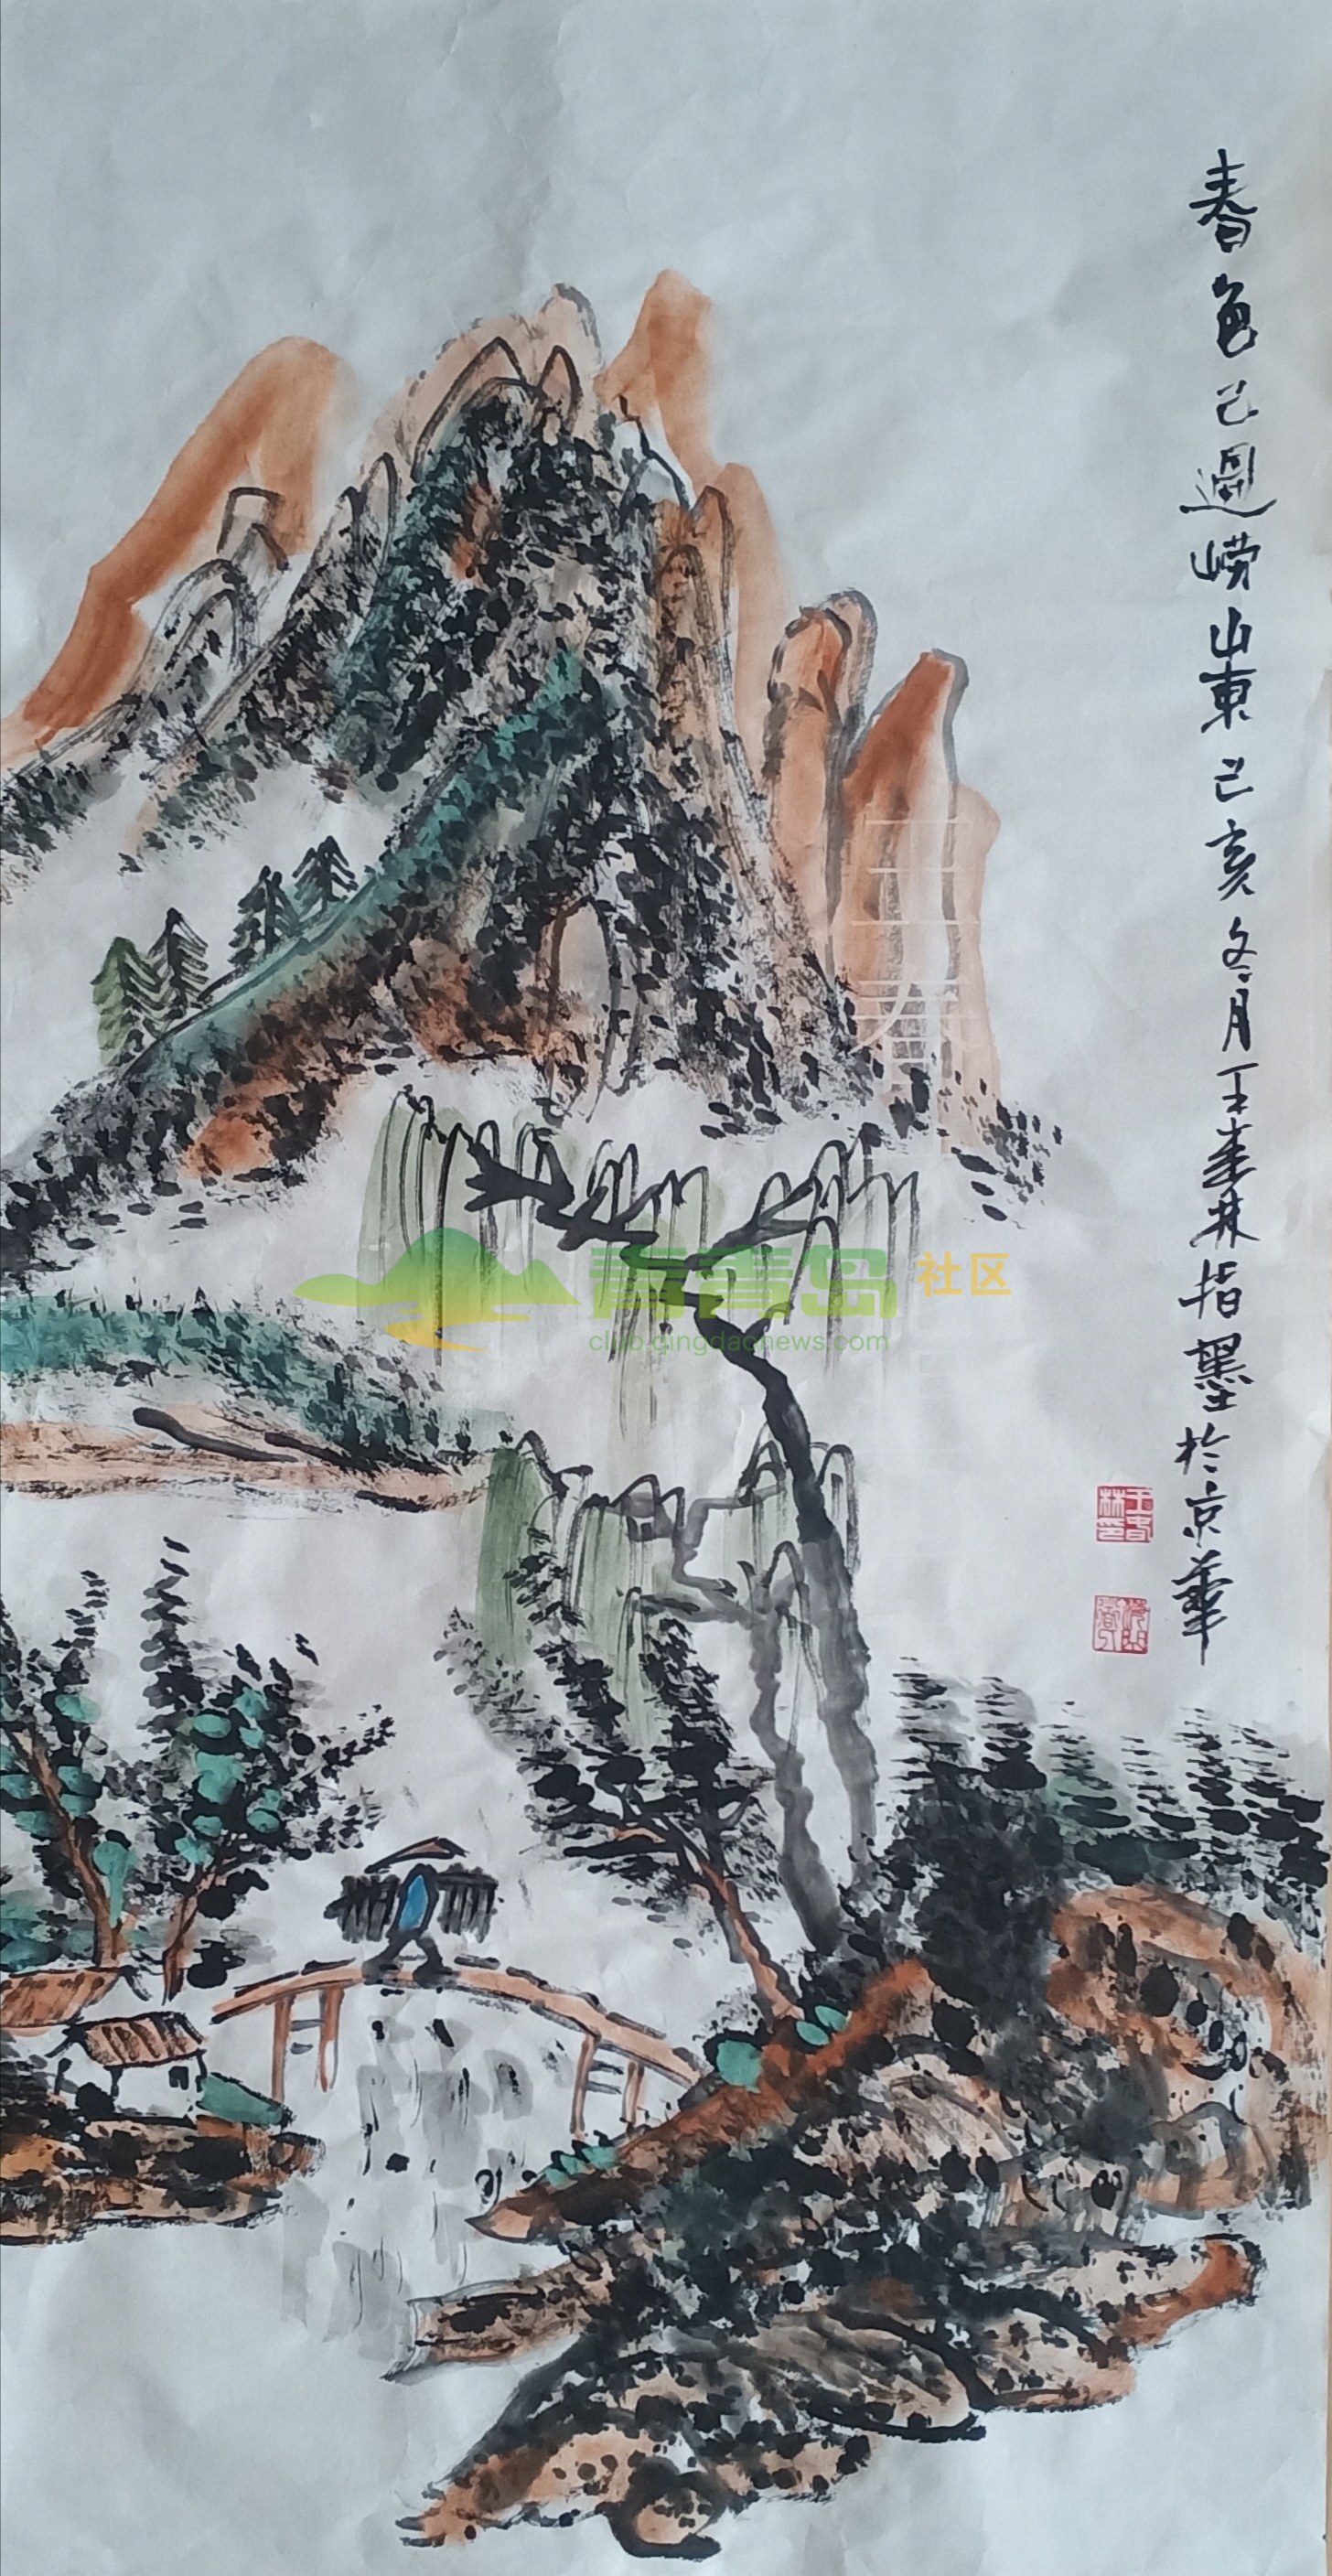 春色已過嶗山東己亥冬月王春林指墨於京華
王春林印
青青岛 社区
club.qingdaonews.com